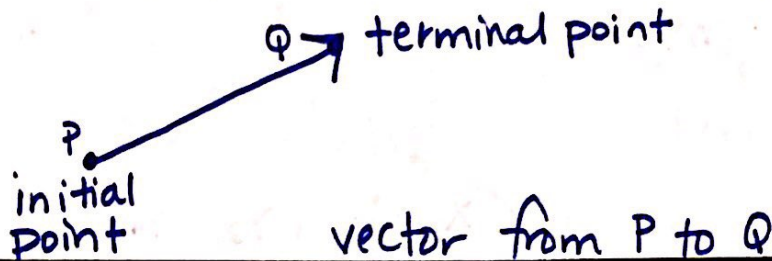 Q terminal point
P
initial
point
vector from P to Q